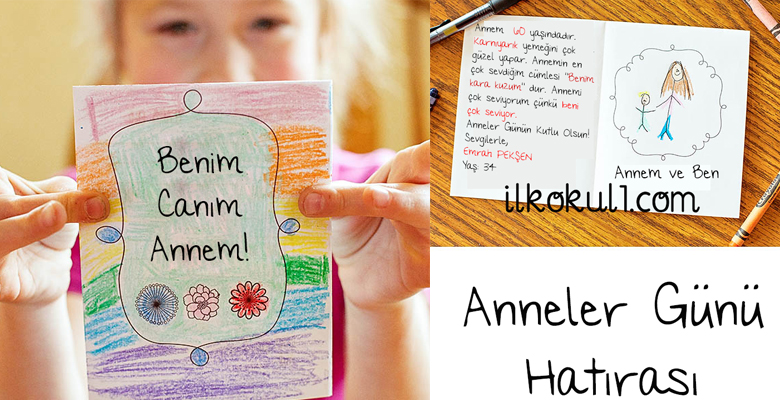 Benim
Canım
Annem!
Annem 60 yaşındadır.
Karnıyarık yemeğini çok
güzel yapar. Annemin en
çok sevdiğim cümlesi "Benim
kara kuzum" dur. Annemi
çok seviyorum çünkü beni
çok seviyor.
Anneler Günün Kutlu Olsun!
Sevgilerle,
Emrah PEKŞEN
Yaş: 34
Annem ve Ben
ilkokul1.com
Anneler Günü
Hatırası